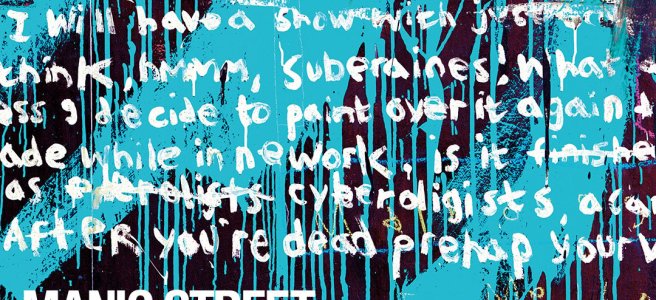 I will have a show with just
think, hmmm, Suberaines! What
ess I decide to paint over it again
ade while in nework, is it finishe
as cyberoligists, a
After you're dead prehap your
MANIC STREET